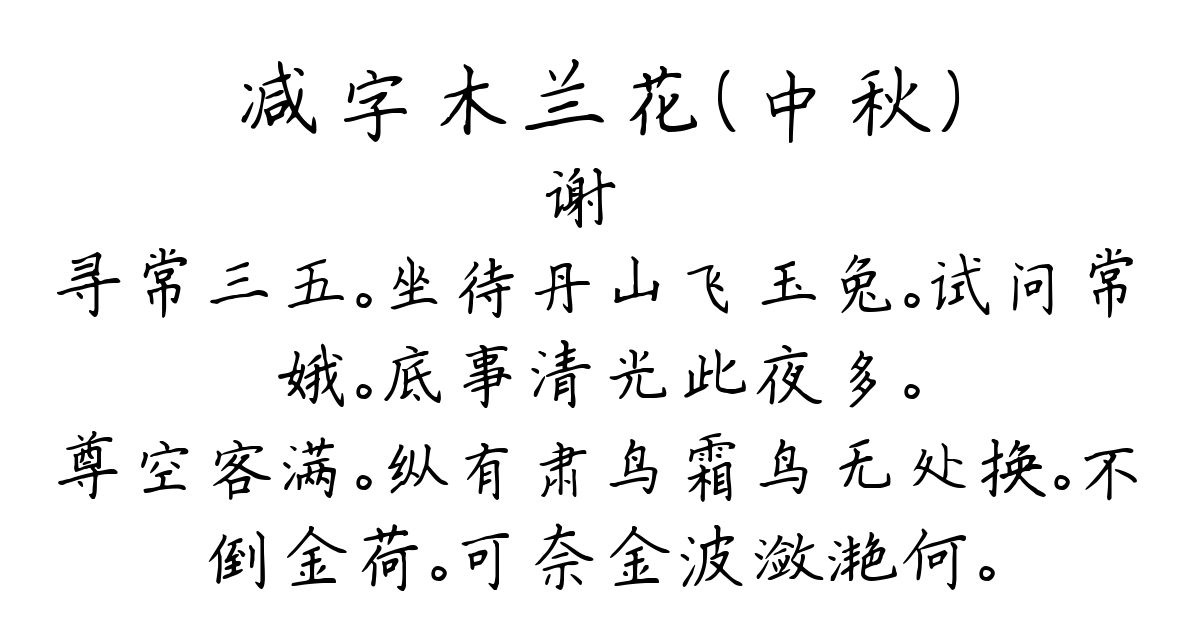 减字木兰花(中秋)
谢
寻常三五。坐待丹山飞玉兔。试问常
娥。底事清光此夜多。
尊空客满。纵有肃鸟霜鸟无处换。不
倒金荷。可奈金波潋滟何。